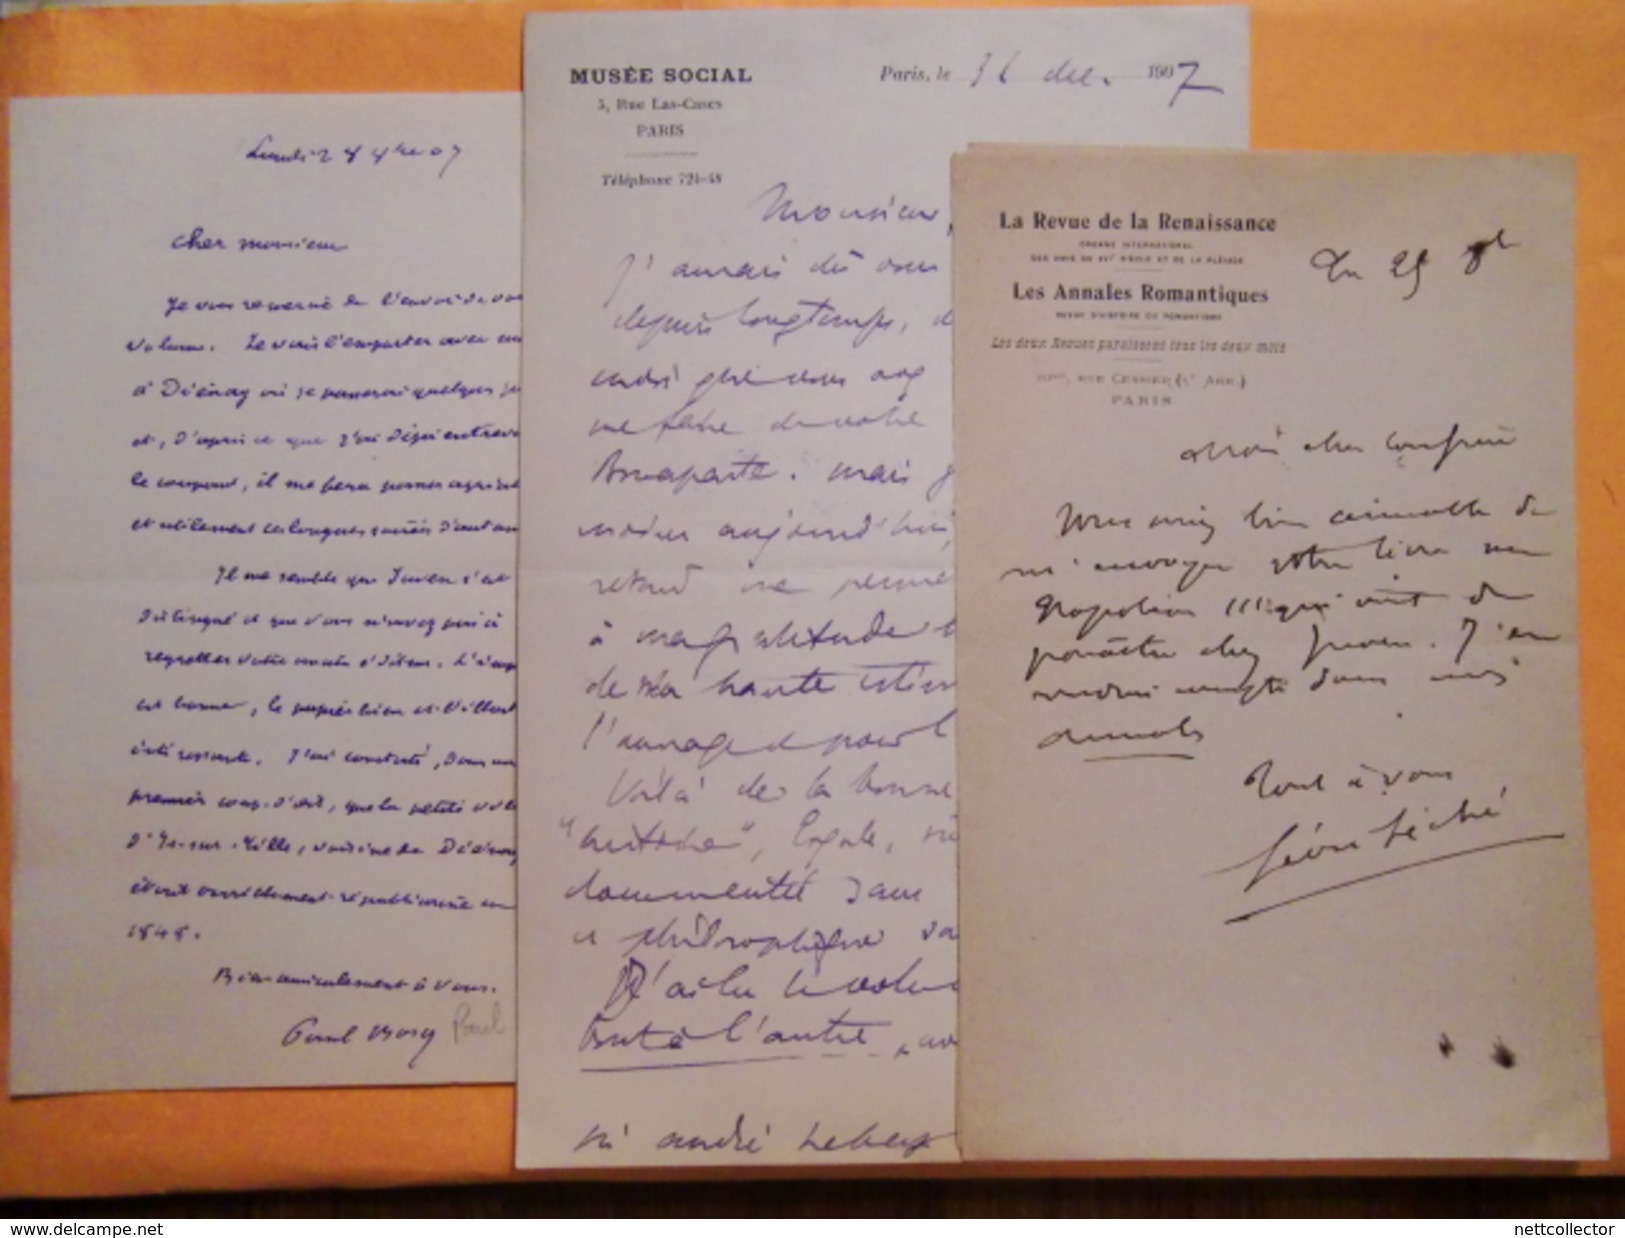 Lundi 28 8bre 07
cher monsieur
Je vous remercie de l'envoi de vo
volume. Je vais l'emporter avec
à Diénay où je passerai quelques
et, d'après ce que j'ai déjà entrev
le coupant, il me fera passer agréa
et utilement ces longues soirées d'automn
Il me semble que Juven s'est
distingué et que vous n'avez pas à
regretter votre éditeur.
est bonne, le papier bien et l'illust
intéressante. J'ai constaté, dans un
premier coup d'œil, que la petite vill
d'Is-sur-Tille, voisine de Diénay
était ardemment républicaine en
1848.
Bien amicalement à vous.
Paul
Paul
MUSÉE SOCIAL
5, Rue Las-Cases
PARIS
Téléphone 724-48
Paris, le 31 dec. 1907
Monsieur,
J'aurais dû vous
depuis longtemps, d
me faire de votre
Bonaparte. mais j
moins aujourd'hui,
retard ne perme
à ma gratitude
de ma haute estim
l'ouvrage et pour l
Voilà de la bonne
"histoire", loyale,
documentée sans
et philosophique
J'ai lu le volum
bout à l'autre, av
M' André Lebey
La Revue de la Renaissance
ORGANE INTERNATIONAL
DES AMIS DU XVIe SIÈCLE ET DE LA PLÉIADE
Les Annales Romantiques
REVUE D'HISTOIRE DU ROMANTISME
Les deux Revues paraissent tous les deux mois
RUE CENSIER (5e Arr.)
PARIS
Du 25 8bre
Mon cher confrère
Vous seriez bien aimable de
m'envoyer votre livre sur
Napoléon III qui vient de
paraître chez Juven. J'en
rendrai compte dans mes
Annales
Tout à vous
Léon Séché
www.delcampe.net
nettcollector